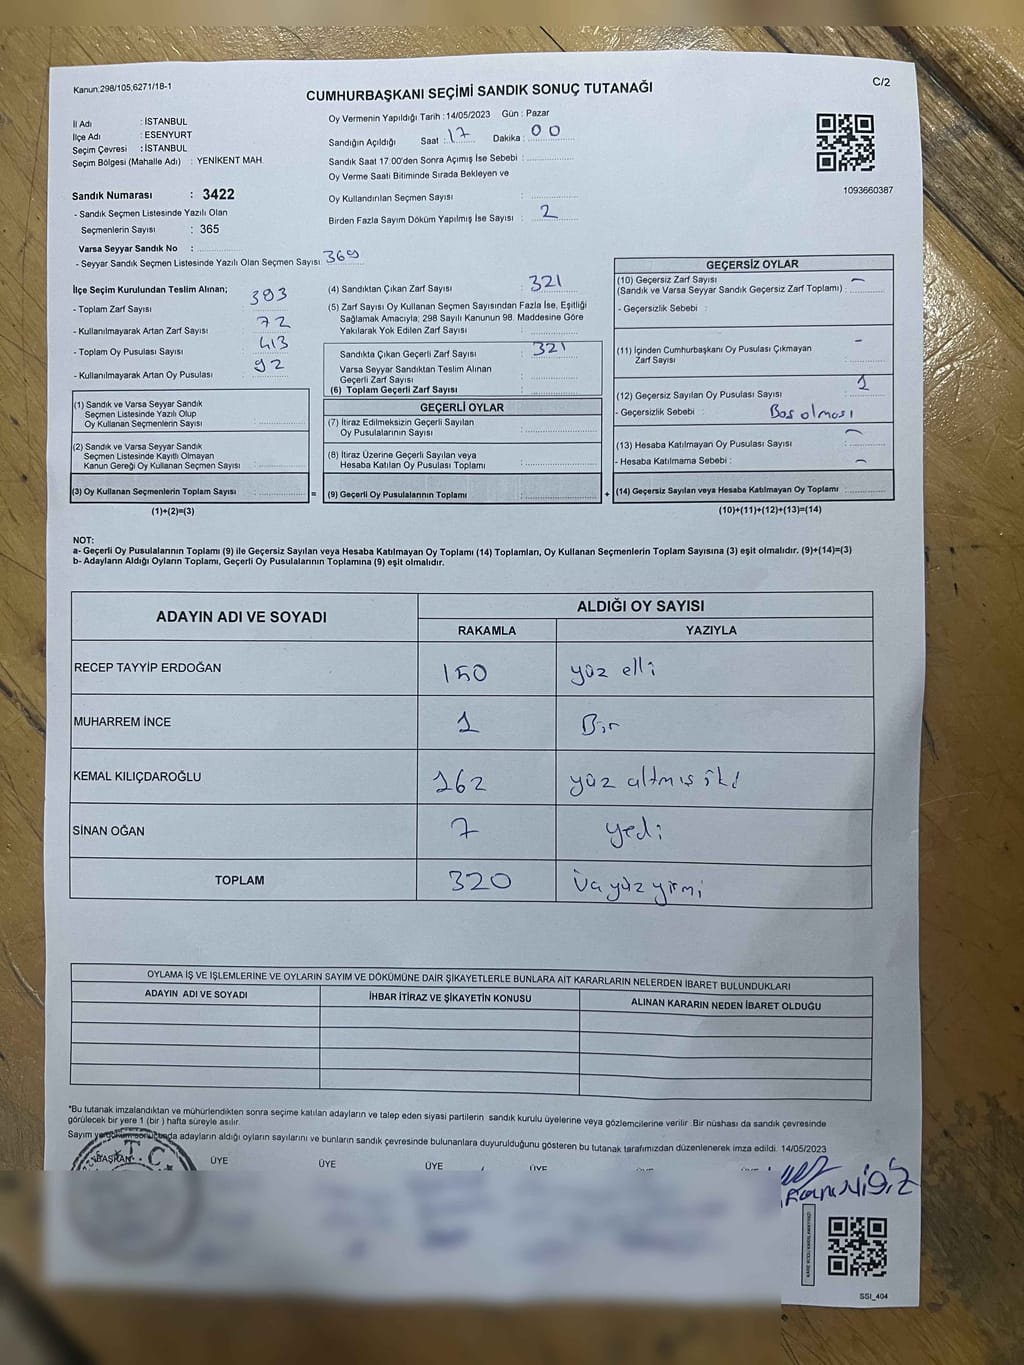 Kanun:298/105,6271/18-1
CUMHURBAŞKANI SEÇİMİ SANDIK SONUÇ TUTANAĞI
C/2
İl Adı : İSTANBUL
İlçe Adı : ESENYURT
Seçim Çevresi : İSTANBUL
Seçim Bölgesi (Mahalle Adı) : YENİKENT MAH.
Oy Vermenin Yapıldığı Tarih :14/05/2023 Gün : Pazar
Sandığın Açıldığı Saat : 17 Dakika : 00
Sandık Saat 17:00'den Sonra Açımış İse Sebebi :
Oy Verme Saati Bitiminde Sırada Bekleyen ve
Oy Kullandırılan Seçmen Sayısı :
Birden Fazla Sayım Döküm Yapılmış İse Sayısı : 2
1093660387
Sandık Numarası : 3422
- Sandık Seçmen Listesinde Yazılı Olan
Seçmenlerin Sayısı : 365
Varsa Seyyar Sandık No :
- Seyyar Sandık Seçmen Listesinde Yazılı Olan Seçmen Sayısı
İlçe Seçim Kurulundan Teslim Alınan;
- Toplam Zarf Sayısı : 393
- Kullanılmayarak Artan Zarf Sayısı : 72
- Toplam Oy Pusulası Sayısı : 413
- Kullanılmayarak Artan Oy Pusulası : 92
(1) Sandık ve Varsa Seyyar Sandık
Seçmen Listesinde Yazılı Olup
Oy Kullanan Seçmenlerin Sayısı :
(2) Sandık ve Varsa Seyyar Sandık
Seçmen Listesinde Kayıtlı Olmayan
Kanun Gereği Oy Kullanan Seçmen Sayısı :
(3) Oy Kullanan Seçmenlerin Toplam Sayısı :
(1)+(2)=(3)
(4) Sandıktan Çıkan Zarf Sayısı : 321
(5) Zarf Sayısı Oy Kullanan Seçmen Sayısından Fazla İse, Eşitliği
Sağlamak Amacıyla; 298 Sayılı Kanunun 98. Maddesine Göre
Yakılarak Yok Edilen Zarf Sayısı :
Sandıkta Çıkan Geçerli Zarf Sayısı : 321
Varsa Seyyar Sandıktan Teslim Alınan
Geçerli Zarf Sayısı :
(6) Toplam Geçerli Zarf Sayısı :
GEÇERLİ OYLAR
(7) İtiraz Edilmeksizin Geçerli Sayılan
Oy Pusulalarının Sayısı :
(8) İtiraz Üzerine Geçerli Sayılan veya
Hesaba Katılan Oy Pusulası Toplamı :
= (9) Geçerli Oy Pusulalarının Toplamı :
GEÇERSİZ OYLAR
(10) Geçersiz Zarf Sayısı
(Sandık ve Varsa Seyyar Sandık Geçersiz Zarf Toplamı) : -
- Geçersizlik Sebebi :
(11) İçinden Cumhurbaşkanı Oy Pusulası Çıkmayan
Zarf Sayısı : -
(12) Geçersiz Sayılan Oy Pusulası Sayısı : 1
- Geçersizlik Sebebi : Boş olması
(13) Hesaba Katılmayan Oy Pusulası Sayısı : -
- Hesaba Katılmama Sebebi : -
+ (14) Geçersiz Sayılan veya Hesaba Katılmayan Oy Toplamı :
(10)+(11)+(12)+(13)=(14)
NOT:
a- Geçerli Oy Pusulalarının Toplamı (9) ile Geçersiz Sayılan veya Hesaba Katılmayan Oy Toplamı (14) Toplamları, Oy Kullanan Seçmenlerin Toplam Sayısına (3) eşit olmalıdır. (9)+(14)=(3)
b- Adayların Aldığı Oyların Toplamı, Geçerli Oy Pusulalarının Toplamına (9) eşit olmalıdır.
ADAYIN ADI VE SOYADI
ALDIĞI OY SAYISI
RAKAMLA YAZIYLA
RECEP TAYYİP ERDOĞAN 150 yüz elli
MUHARREM İNCE 1 Bir
KEMAL KILIÇDAROĞLU 162 yüz altmış iki
SİNAN OĞAN 7 yedi
TOPLAM 320 üç yüz yirmi
OYLAMA İŞ VE İŞLEMLERİNE VE OYLARIN SAYIM VE DÖKÜMÜNE DAİR ŞİKAYETLERLE BUNLARA AİT KARARLARIN NELERDEN İBARET BULUNDUKLARI
ADAYIN ADI VE SOYADI İHBAR İTİRAZ VE ŞİKAYETİN KONUSU ALINAN KARARIN NEDEN İBARET OLDUĞU
*Bu tutanak imzalandıktan ve mühürlendikten sonra seçime katılan adayların ve talep eden siyasi partilerin sandık kurulu üyelerine veya gözlemcilerine verilir .Bir nüshası da sandık çevresinde
görülecek bir yere 1 (bir ) hafta süreyle asılır.
adayların aldığı oyların sayılarını ve bunların sandık çevresinde bulunanlara duyurulduğunu gösteren bu tutanak tarafımızdan düzenlenerek imza edildi. 14/05/2023
BAŞKAN ÜYE ÜYE ÜYE ÜYE
T.C.
SSI_404